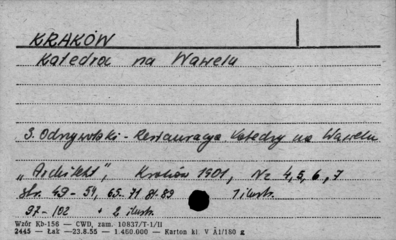 KRAKÓW
Katedra na Wawelu
S. Odrzywolski - Restauracja Katedry na Wawelu
"Architekt", Kraków 1901, Nr 4, 5, 6, 7
str. 49 - 59, 65-71 81-89 1 ilustr.
97-102 + 2 ilustr.
Wzór Kb-156 — CWD, zam. 10837/T-1/II
2445 — Łak —23.8.55 — 1.460.000 — Karton kl. V A1/180 g